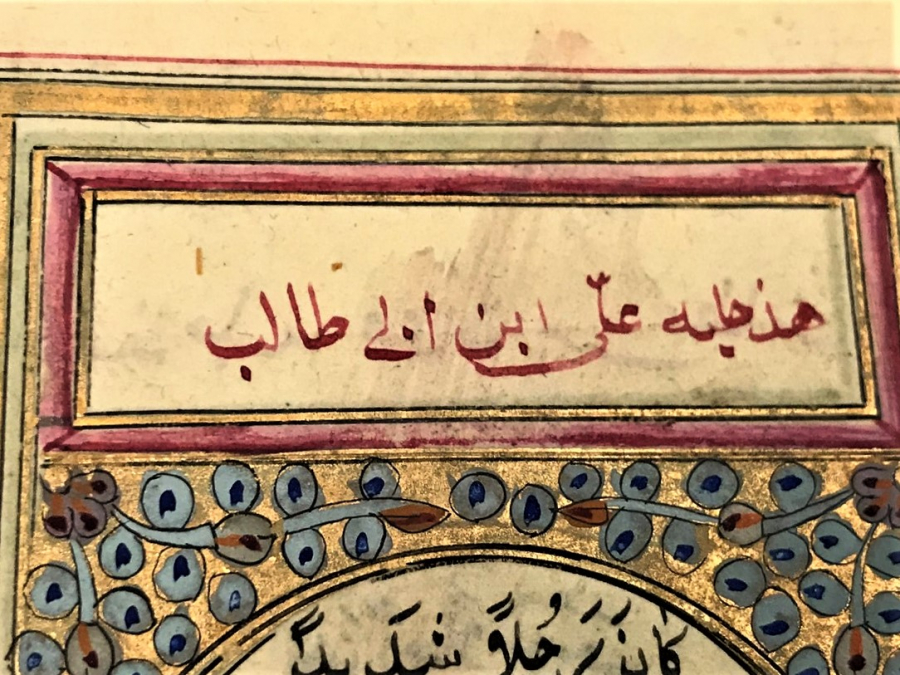 هذ حليه علّى ابن ابى طالب
كَانَ رَجُلاً شَدِيداً